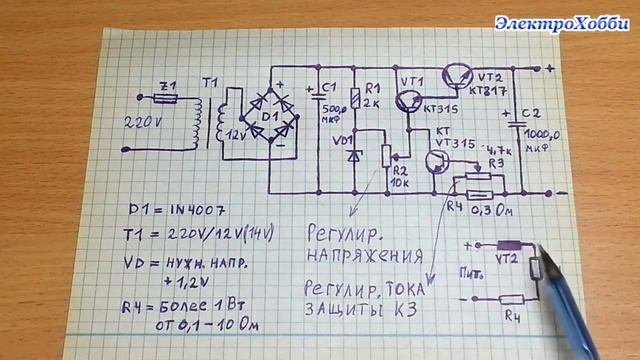 ЭлектроХобби
Z1
T1
220V
12V
D1
+
−
C1
500,0
мкФ
R1
2к
VD1
R2
10к
VT1
КТ315
VT2
КТ817
КТ
VT315
4,7к
R3
R4
0,3 Ом
C2
1000,0
мкФ
+
−
D1 = IN4007
T1 = 220V/12V(14V)
VD = нужн. напр.
+ 1,2V
R4 = более 1 Вт
от 0,1 – 10 Ом
Регулир.
напряжения
Регулир. тока
защиты КЗ
+
VT2
Пит.
−
R4